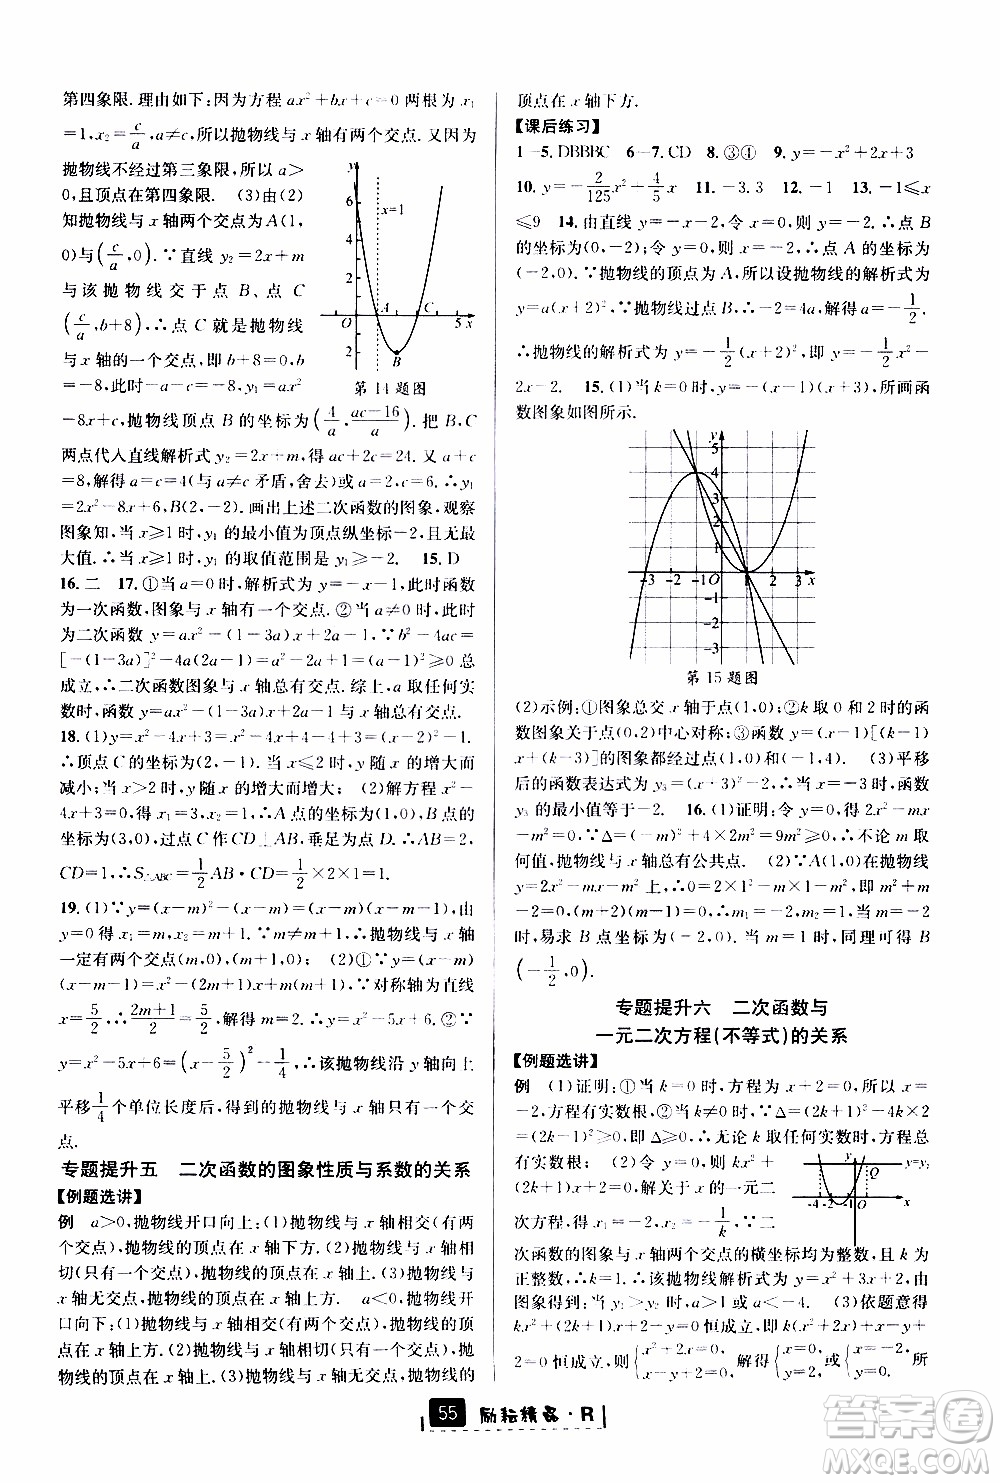 第四象限. 理由如下:因为方程 ax²+bx+c=0 两根为 x₁
=1, x₂=c/a, a≠c, 所以抛物线与 x 轴有两个交点. 又因为
抛物线不经过第三象限, 所以 a>
0, 且顶点在第四象限. (3)由(2)
知抛物线与 x 轴两个交点为 A(1,
0)与(c/a, 0). ∵直线 y₂=2x+m
与该抛物线交于点 B、点 C
(c/a, b+8), ∴点 C 就是抛物线
与 x 轴的一个交点, 即 b+8=0, b
=-8, 此时-8=a+c, y₁=ax²
第 14 题图
-8x+c, 抛物线顶点 B 的坐标为(4/a, (ac-16)/a). 把 B、C
两点代入直线解析式 y₂=2x+m, 得 ac+2c=24. 又 a+c
=8, 解得 a=c=4(与 a≠c 矛盾, 舍去)或 a=2, c=6. ∴y₁
=2x²-8x+6, B(2, -2). 画出上述二次函数的图象, 观察
图象知, 当 x≥1 时, y₁ 的最小值为顶点纵坐标-2, 且无最
大值. ∴当 x≥1 时, y₁ 的取值范围是 y₁≥-2. 15. D
16. 二 17. ①当 a=0 时, 解析式为 y=x+1, 此时函数
为一次函数, 图象与 x 轴有一个交点. ②当 a≠0 时, 此时
为二次函数 y=ax²-(1-3a)x+2a-1. ∵b²-4ac=
[-(1-3a)]²-4a(2a-1)=a²-2a+1=(a-1)²≥0 总
成立, ∴二次函数图象与 x 轴总有交点. 综上, a 取任何实
数时, 函数 y=ax²-(1-3a)x+2a-1 的图象与 x 轴总有交点.
18. (1)y=x²-4x+3=x²-4x+4-4+3=(x-2)²-1.
∴顶点 C 的坐标是(2, -1), 当 x≤2 时, y 随 x 的增大而
减小; 当 x>2 时, y 随 x 的增大而增大. (2)解方程 x²-
4x+3=0 得 x₁=3, x₂=1. ∴A 点的坐标为(1,0), B 点的
坐标为(3,0), 过点 C 作 CD⊥AB, 垂足为点 D. ∴AB=2,
CD=1, ∴S△ABC=1/2 AB·CD=1/2×2×1=1.
19. (1)∵y=(x-m)²-(x-m)=(x-m)(x-m-1), 由
y=0 得 x₁=m, x₂=m+1. ∵m≠m+1, ∴抛物线与 x 轴
一定有两个交点(m,0), (m+1,0). (2)①∵y=x²-
(2m+1)x+m(m+1), ∵对称轴为直线
x=5/2, ∴(2m+1)/2=5/2, 解得 m=2. ∴y=x²-5x+6. ②∵
y=x²-5x+6=(x-5/2)²-1/4, ∴该抛物线沿 y 轴向上
平移1/4个单位长度后, 得到的抛物线与 x 轴只有一个交
点.
专题提升五 二次函数的图象性质与系数的关系
【例题选讲】
例 a>0, 抛物线开口向上:(1)抛物线与 x 轴相交(有两
个交点), 抛物线的顶点在 x 轴下方. (2)抛物线与 x 轴相
切(只有一个交点), 抛物线的顶点在 x 轴上. (3)抛物线与
x 轴无交点, 抛物线的顶点在 x 轴上方. a<0, 抛物线开
口向下:(1)抛物线与 x 轴相交(有两个交点), 抛物线的顶
点在 x 轴上方. (2)抛物线与 x 轴相切(只有一个交点), 抛
物线的顶点在 x 轴上. (3)抛物线与 x 轴无交点, 抛物线的
顶点在 x 轴下方.
【课后练习】
1-5. DBBBC 6-7. CD 8. ③④ 9. y=-x²+2x+3
10. y=-2/125x²+4/5x 11. -3.3 12. -1 13. -1≤x
≤9 14. 由直线 y=-x-2, 令 x=0, 则 y=-2, ∴点 B
的坐标为(0, -2); 令 y=0, 则 x=-2, ∴点 A 的坐标为
(-2,0). ∵抛物线的顶点为 A, 所以设抛物线的解析式为
y=a(x+2)², ∵抛物线过点 B, ∴-2=4a, 解得 a=-1/2.
∴抛物线的解析式为 y=-1/2(x+2)², 即 y=-1/2x²-
2x-2. 15. (1)当 k=0 时, y=-(x-1)(x+3), 所画函
数图象如图所示.
第 15 题图
(2)示例:①图象总交 x 轴于点(1,0);②k 取 0 和 2 时的
函数图象关于点(0,2)中心对称;③函数 y=(k-1)[(k-
1)x+(k-3)]的图象都经过点(1,0)和(-1,4). (3)平移
后的函数表达式为 y₃=(x+3)²-2, ∴当 x=-3 时, 函数
y₃ 的最小值等于-2. 16. (1)证明:令 y=0 得 2x²-mx
-m²=0, ∵Δ=(-m)²+4×2m²=9m²≥0, ∴不论 m 取
何值, 抛物线与 x 轴总有公共点. (2)∵A(1,0)在抛物线
y=2x²-mx-m² 上, ∴2-m-m²=0, 即 m²+m
-2=0, ∴(m+2)(m-1)=0, ∴m₁=1, m₂=-2. 当 m=-2 时,
易求 B 点坐标为(-2,0). 当 m=1 时, 同理可得 B
(-1/2, 0).
专题提升六 二次函数与
一元二次方程(不等式)的关系
【例题选讲】
例 (1)证明:①当 k=0 时, 方程为 x+2=0, 所以 x=
-2, 方程有实数根. ②当 k≠0 时, ∵Δ=(2k+1)²-4k×
2=(2k-1)²≥0, 即 Δ≥0, ∴无论 k 取任何实数时, 方程总
有实数根. (2)令 y=0, 则 kx²+
(2k+1)x+2=0, 解关于 x 的一元二
次方程, 得 x₁=-2, x₂=-1/k, ∵二
次函数的图象与 x 轴两个交点的横坐标均为整数, 且 k 为
正整数, ∴k=1. ∴该抛物线解析式为 y=x²+3x+2. 由
图象得到:当 y₁>y₂ 时, a>1 或 a<-4. (3)依题意得
kx²+2kx+x+2-y=0 恒成立, 即 k(x²+2x)+x-y+
2=0 恒成立, 则{x²+2x=0, x-y+2=0, 解得{x=0, y=2 或{x=-2, y=0. 所
55 励耘精品·R
答案圈
MXQE.COM